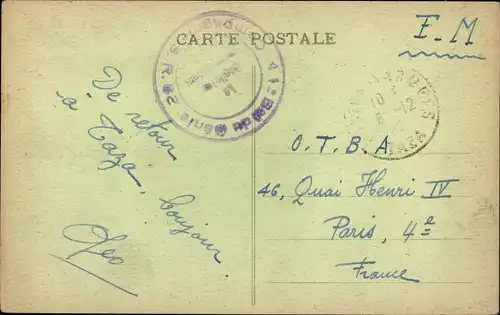 CARTE POSTALE
F. M
De retour
à Taza,
bonjour
Geo
O. T. B. A
46, Quai Henri IV
Paris, 4e
France
TAZA